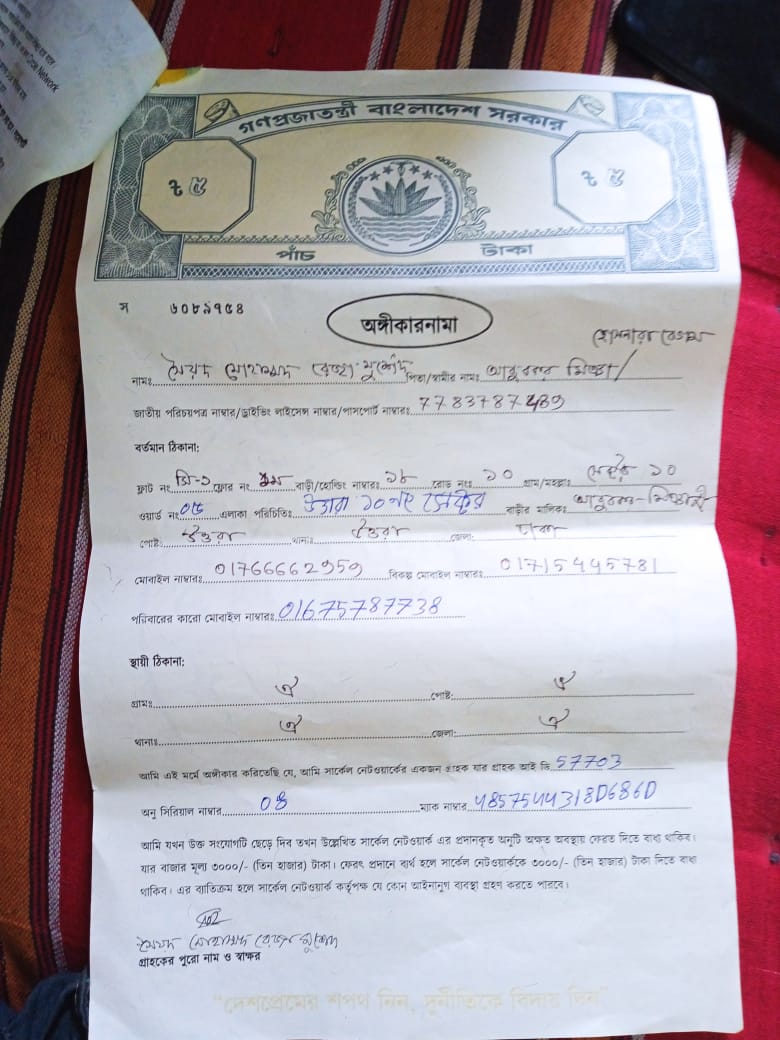 Circle Network
গণপ্রজাতন্ত্রী বাংলাদেশ সরকার
৳ ৫
৳ ৫
পাঁচ টাকা
স ৬০৮৯৭৫৪
অঙ্গীকারনামা
হোসনারা বেগম
নামঃ সৈয়দ মোহাম্মদ রেজা মুর্শেদ পিতা/স্বামীর নামঃ আবুবকর মিঞা/
জাতীয় পরিচয়পত্র নাম্বার/ড্রাইভিং লাইসেন্স নাম্বার/পাসপোর্ট নাম্বারঃ 7783787489
বর্তমান ঠিকানা:
ফ্লাট নং সি-১ ফ্লোর নং ১ম বাড়ী/হোল্ডিং নাম্বারঃ ১৮ রোড নংঃ ১০ গ্রাম/মহল্লাঃ সেক্টর ১০
ওয়ার্ড নং ০৫ এলাকা পরিচিতিঃ উত্তরা ১০নং সেক্টর বাড়ীর মালিকঃ আবুবকর-মিঞা
পোষ্ট: উত্তরা থানাঃ উত্তরা জেলা: ঢাকা
মোবাইল নাম্বারঃ 01766662959 বিকল্প মোবাইল নাম্বারঃ 01715445781
পরিবারের কারো মোবাইল নাম্বারঃ 01675787738
স্থায়ী ঠিকানা:
গ্রামঃ ঐ পোষ্ট: ঐ
থানাঃ ঐ জেলা: ঐ
আমি এই মর্মে অঙ্গীকার করিতেছি যে, আমি সার্কেল নেটওয়ার্কের একজন গ্রাহক যার গ্রাহক আই ডি 57703
অনু সিরিয়াল নাম্বার 08 ম্যাক নাম্বার 48575444318D686D
আমি যখন উক্ত সংযোগটি ছেড়ে দিব তখন উল্লেখিত সার্কেল নেটওয়ার্ক এর প্রদানকৃত অনুটি অক্ষত অবস্থায় ফেরত দিতে বাধ্য থাকিব।
যার বাজার মূল্য ৩০০০/- (তিন হাজার) টাকা। ফেরৎ প্রদানে ব্যর্থ হলে সার্কেল নেটওয়ার্ককে ৩০০০/- (তিন হাজার) টাকা দিতে বাধ্য
থাকিব। এর ব্যতিক্রম হলে সার্কেল নেটওয়ার্ক কর্তৃপক্ষ যে কোন আইনানুগ ব্যবস্থা গ্রহণ করতে পারবে।
সৈয়দ মোহাম্মদ রেজা মুর্শেদ
গ্রাহকের পুরো নাম ও স্বাক্ষর
"দেশপ্রেমের শপথ নিন, দুর্নীতিকে বিদায় দিন"